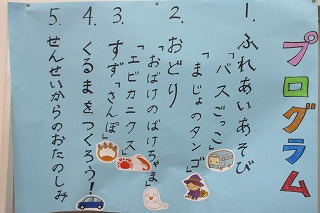 プログラム
1. ふれあいあそび
「バスごっこ」
「まじょのタンゴ」
2. おどり
「おばけのばけちゃま」
「エビカニクス」
3. すず「さんぽ」
4. くるまをつくろう!
5. せんせいからのおたのしみ